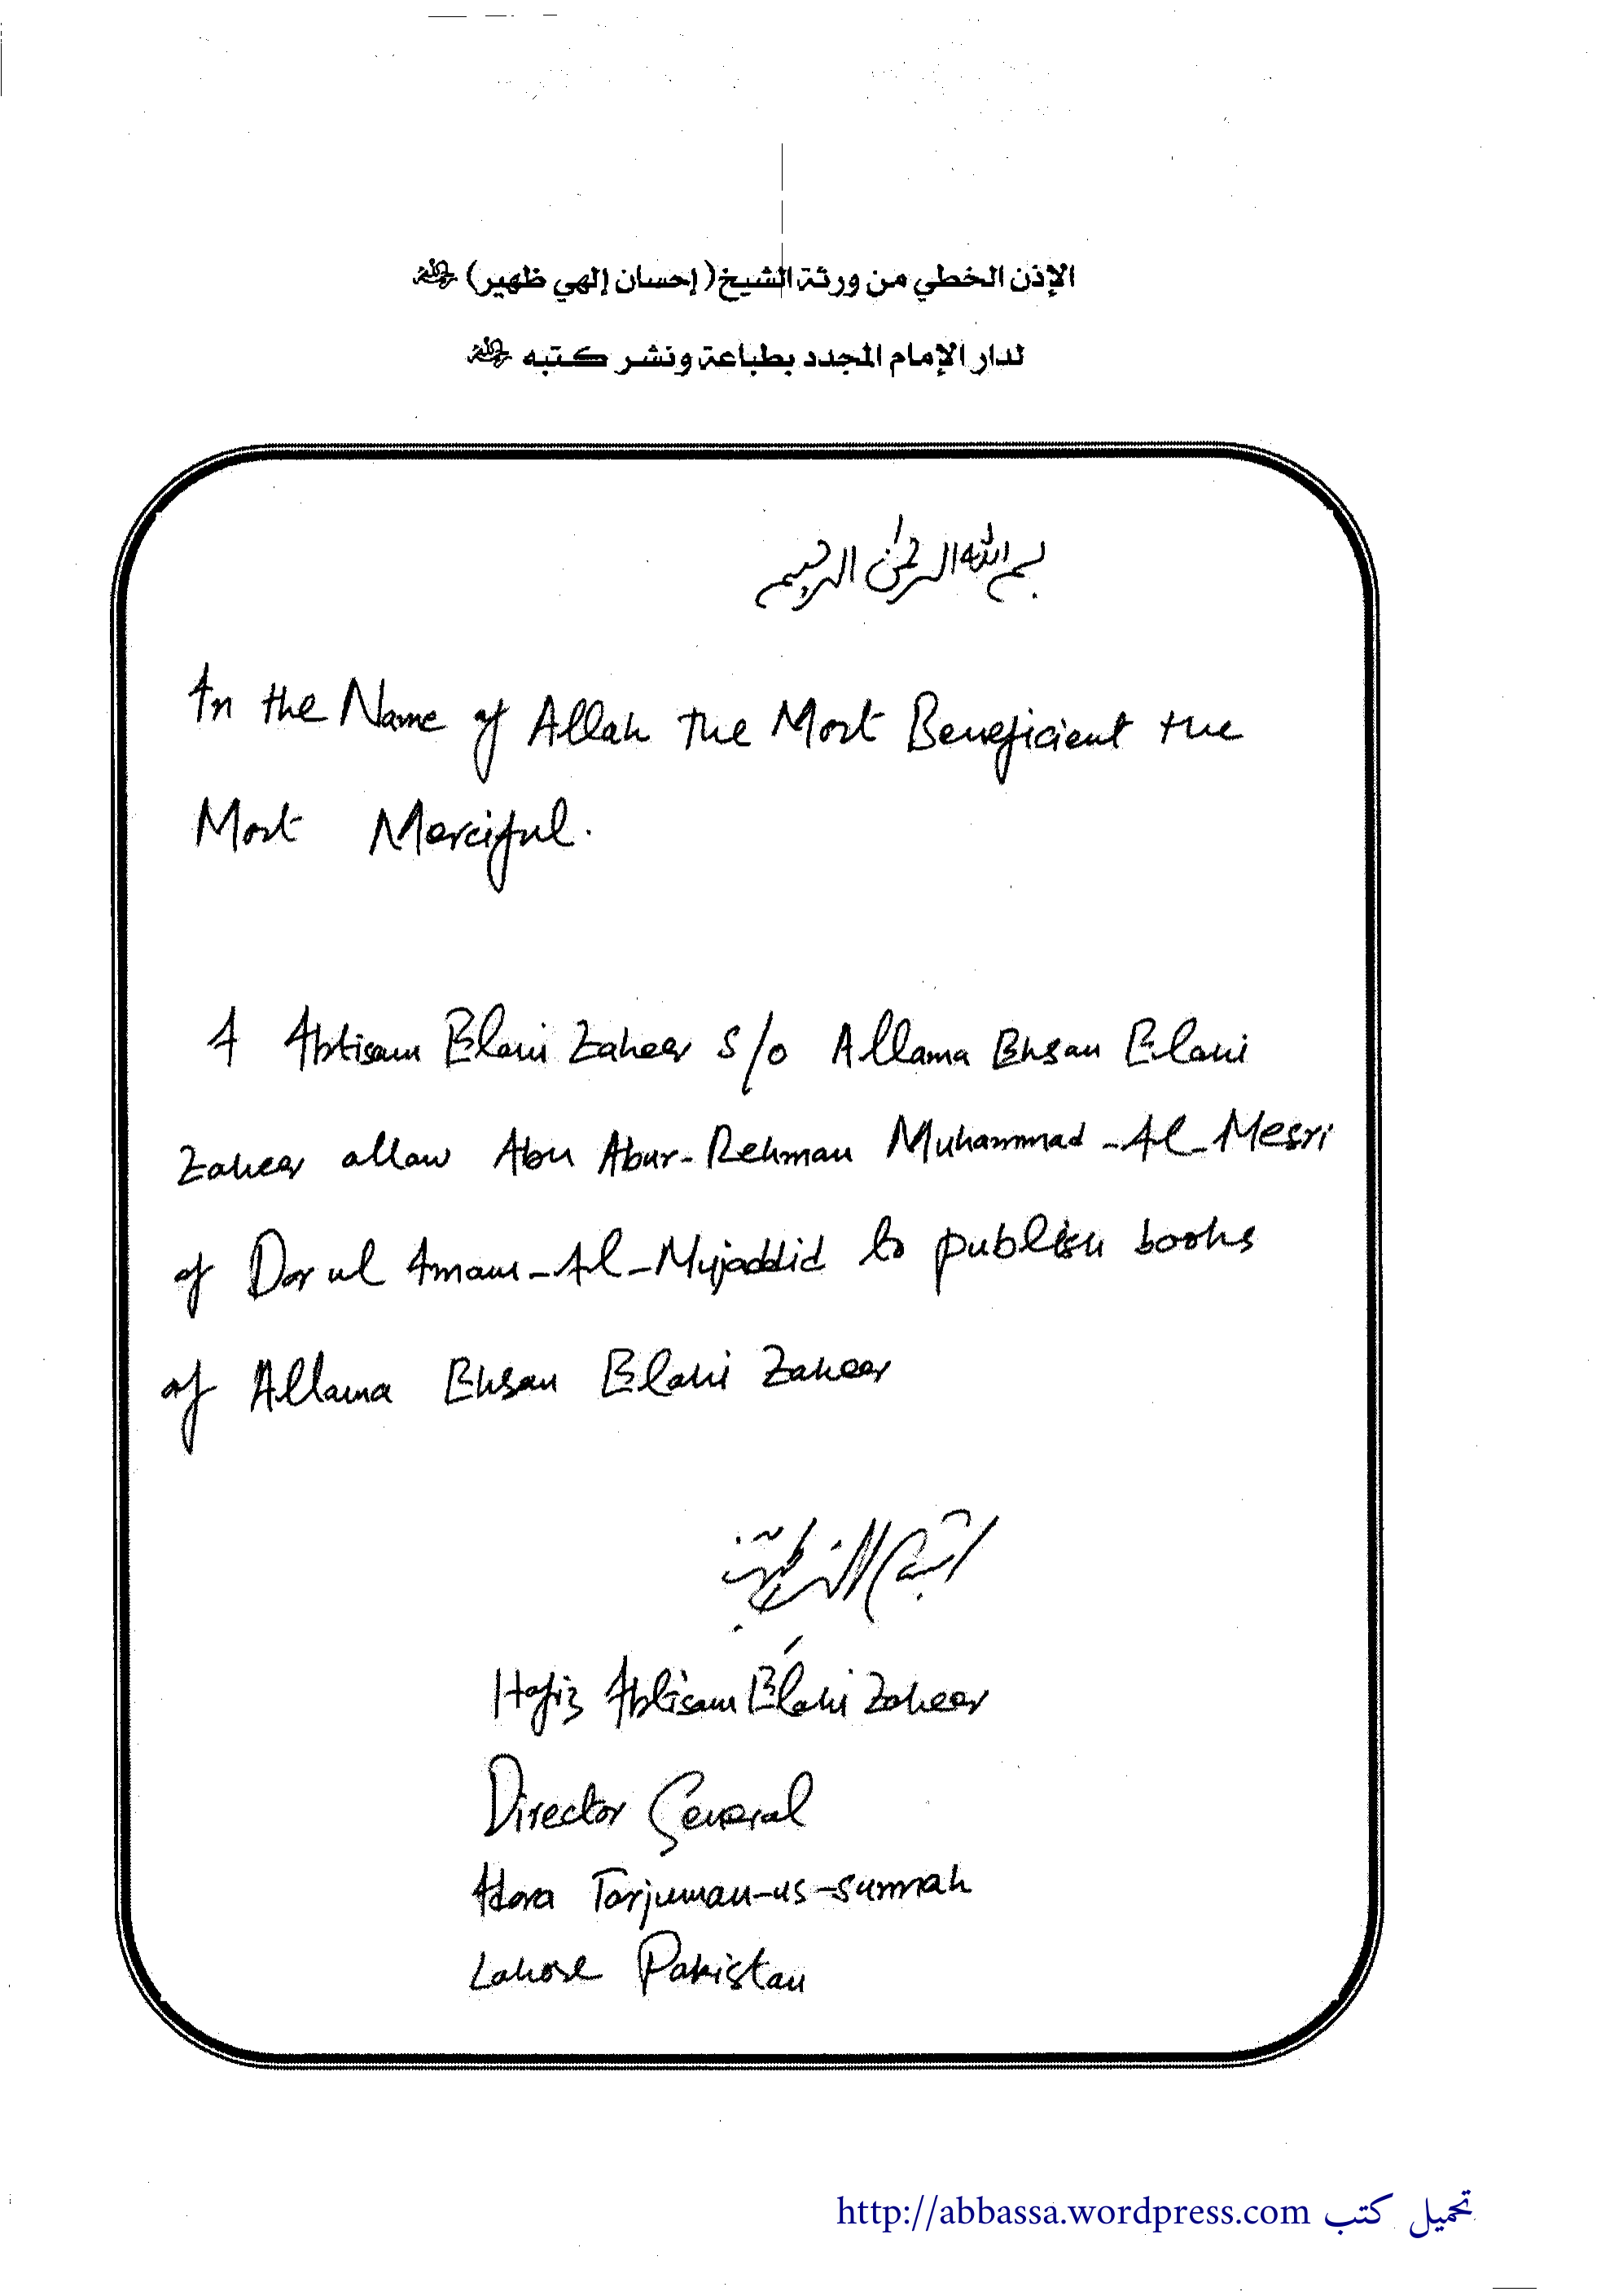 الإذن الخطي من ورثة الشيخ (إحسان إلهي ظهير) رحمه الله
لدار الإمام المجدد بطباعة ونشر كتبه رحمه الله
بسم الله الرحمن الرحيم
In the Name of Allah The Most Beneficient the
Most Merciful.
I Ibtisam Elahi Zaheer S/o Allama Ehsan Elahi
Zaheer allow Abu Abur-Rehman Muhammad-Al-Mesri
of Dar ul Imam-Al-Mujaddid to publish books
of Allama Ehsan Elahi Zaheer
Hafiz Ibtisam Elahi Zaheer
Director General
Idara Tarjuman-us-sunnah
Lahore Pakistan
تحميل كتب http://abbassa.wordpress.com